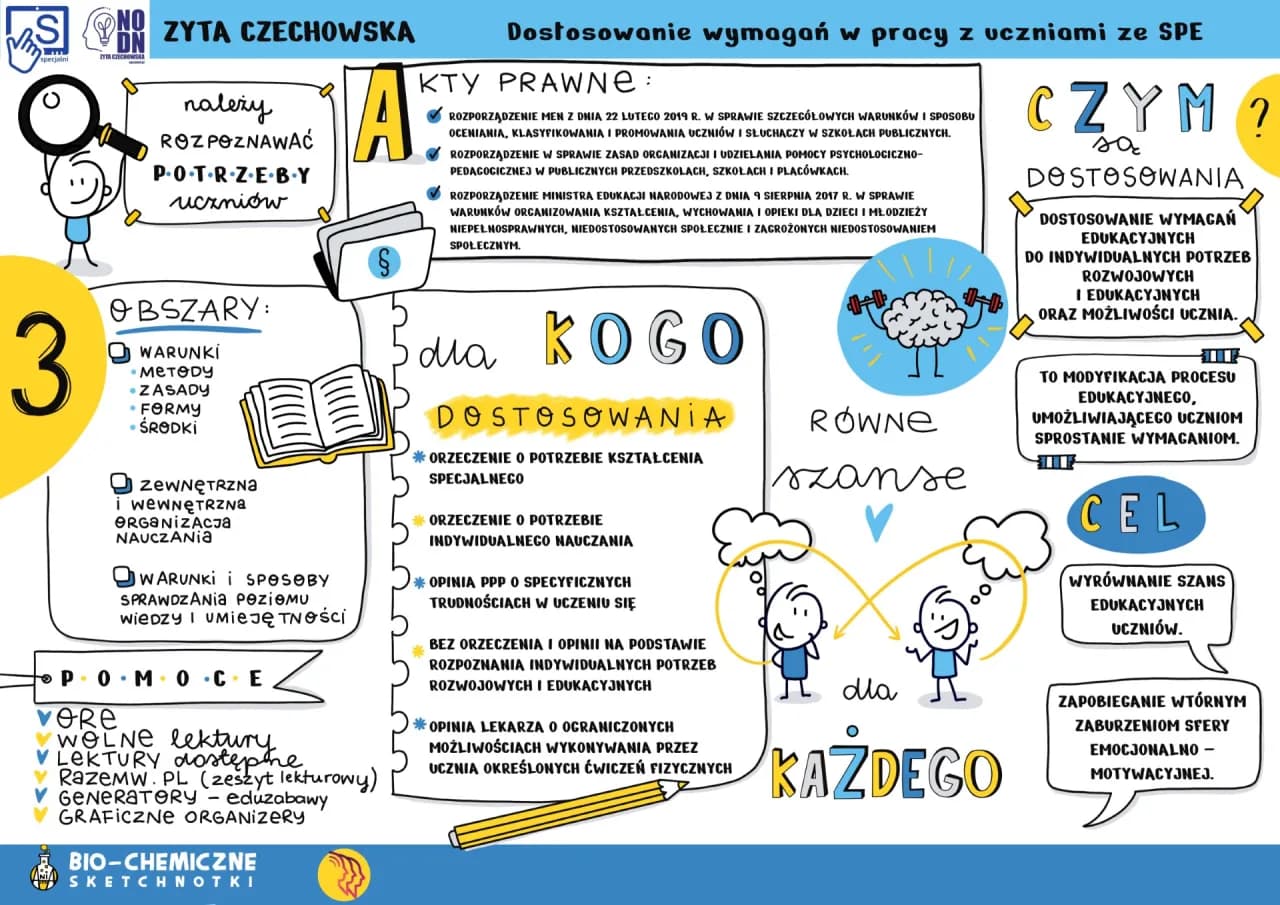 S
specjalni
NO
DN
ZYTA CZECHOWSKA
ZYTA CZECHOWSKA
Dostosowanie wymagań w pracy z uczniami ze SPE
należy
ROZPOZNAWAĆ
P•O•T•R•Z•E•B•Y
uczniów
AKTY PRAWNE:
ROZPORZĄDZENIE MEN Z DNIA 22 LUTEGO 2019 R. W SPRAWIE SZCZEGÓŁOWYCH WARUNKÓW I SPOSOBU
OCENIANIA, KLASYFIKOWANIA I PROMOWANIA UCZNIÓW I SŁUCHACZY W SZKOŁACH PUBLICZNYCH.
ROZPORZĄDZENIE W SPRAWIE ZASAD ORGANIZACJI I UDZIELANIA POMOCY PSYCHOLOGICZNO-
PEDAGOGICZNEJ W PUBLICZNYCH PRZEDSZKOLACH, SZKOŁACH I PLACÓWKACH.
ROZPORZĄDZENIE MINISTRA EDUKACJI NARODOWEJ Z DNIA 9 SIERPNIA 2017 R. W SPRAWIE
WARUNKÓW ORGANIZOWANIA KSZTAŁCENIA, WYCHOWANIA I OPIEKI DLA DZIECI I MŁODZIEŻY
NIEPEŁNOSPRAWNYCH, NIEDOSTOSOWANYCH SPOŁECZNIE I ZAGROŻONYCH NIEDOSTOSOWANIEM
SPOŁECZNYM.
§
CZYM ?
są
DOSTOSOWANIA
DOSTOSOWANIE WYMAGAŃ
EDUKACYJNYCH
DO INDYWIDUALNYCH POTRZEB
ROZWOJOWYCH
I EDUKACYJNYCH
ORAZ MOŻLIWOŚCI UCZNIA.
TO MODYFIKACJA PROCESU
EDUKACYJNEGO,
UMOŻLIWIAJĄCEGO UCZNIOM
SPROSTANIE WYMAGANIOM.
CEL
WYRÓWNANIE SZANS
EDUKACYJNYCH
UCZNIÓW.
ZAPOBIEGANIE WTÓRNYM
ZABURZENIOM SFERY
EMOCJONALNO –
MOTYWACYJNEJ.
3
OBSZARY:
WARUNKI
• METODY
• ZASADY
• FORMY
• ŚRODKI
ZEWNĘTRZNA
i WEWNĘTRZNA
ORGANIZACJA
NAUCZANIA
WARUNKI i SPOSOBY
SPRAWDZANIA POZIOMU
WIEDZY I UMIEJĘTNOŚCI
dla KOGO
DOSTOSOWANIA
ORZECZENIE O POTRZEBIE KSZTAŁCENIA
SPECJALNEGO
ORZECZENIE O POTRZEBIE
INDYWIDUALNEGO NAUCZANIA
OPINIA PPP O SPECYFICZNYCH
TRUDNOŚCIACH W UCZENIU SIĘ
BEZ ORZECZENIA I OPINII NA PODSTAWIE
ROZPOZNANIA INDYWIDUALNYCH POTRZEB
ROZWOJOWYCH I EDUKACYJNYCH
OPINIA LEKARZA O OGRANICZONYCH
MOŻLIWOŚCIACH WYKONYWANIA PRZEZ
UCZNIA OKREŚLONYCH ĆWICZEŃ FIZYCZNYCH
RÓWNE
szanse
dla
KAŻDEGO
P•O•M•O•C•E
ORE
WOLNE lektury
LEKTURY dostępne
RAZEMW.PL (zeszyt lekturowy)
GENERATORY – eduzabawy
GRAFICZNE ORGANIZERY
BIO-CHEMICZNE
SKETCHNOTKI